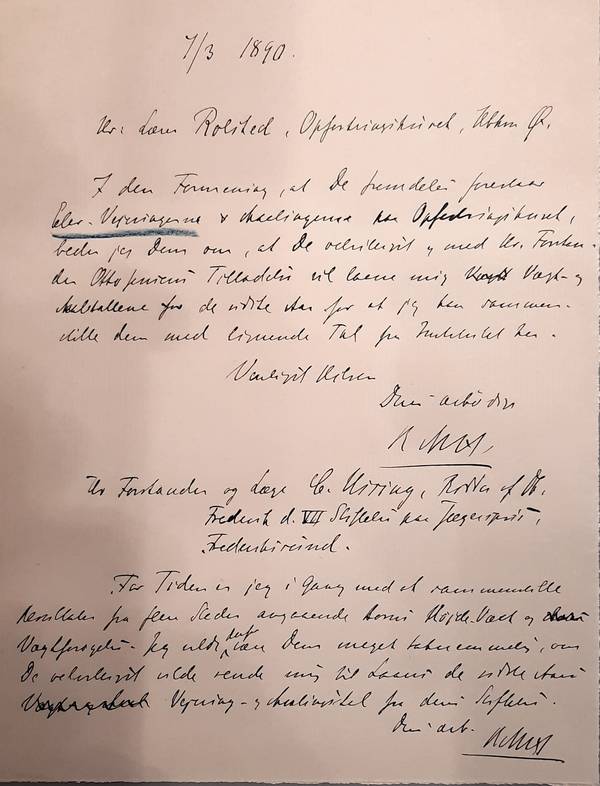 7/3 1890.
Hr: Lærer Rolsted, Opfostringshuset, Kbhvn Ø.
I den Formening, at De fremdeles forestaar
Elev-Vejningerne & Maalingerne paa Opfostringshuset,
beder jeg Dem om, at De velvilligst og med Hr. Forstan-
der Ottosens Tilladelse vil laane mig Vægt- og
Maaltallene for de sidste Aar for at jeg kan sammen-
stille dem med lignende Tal fra Instituttet her.
Venligst Hilsen
Deres ærbødige
Hr Forstander og Læge C. Hiring, Ridder af D.
Frederik d. VII Stiftelse paa Jægerspris,
Frederikssund.
For Tiden er jeg i Gang med at sammenstille
Resultater fra flere Steder angaaende Børns Højde-Vækst og
Vægtforøgelse. Jeg vilde derfor være Dem meget taknemmelig, om
De velvilligst vilde sende mig til Laans de sidste Aars
Vejning- og Maalingstal fra Deres Stiftelse.
Deres ærb.